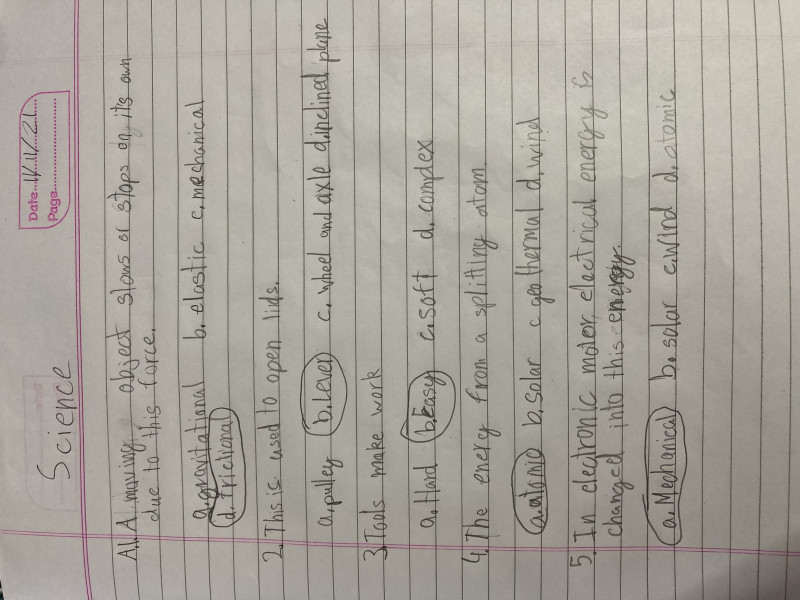 Date...11/11/21....
Page........................
Science
A1. A moving object slows or stops on its own
due to this force.
a. gravitational b. elastic c. mechanical
d. frictional
2. This is used to open lids.
a. pulley b. Lever c. wheel and axle d. inclined plane
3. Tools make work
a. Hard b. Easy c. soft d. complex
4. The energy from a splitting atom.
a. atomic b. solar c geothermal d. wind
5. In electronic moter, electrical energy is
changed into this energy.
a. Mechanical b. solar c. wind d. atomic